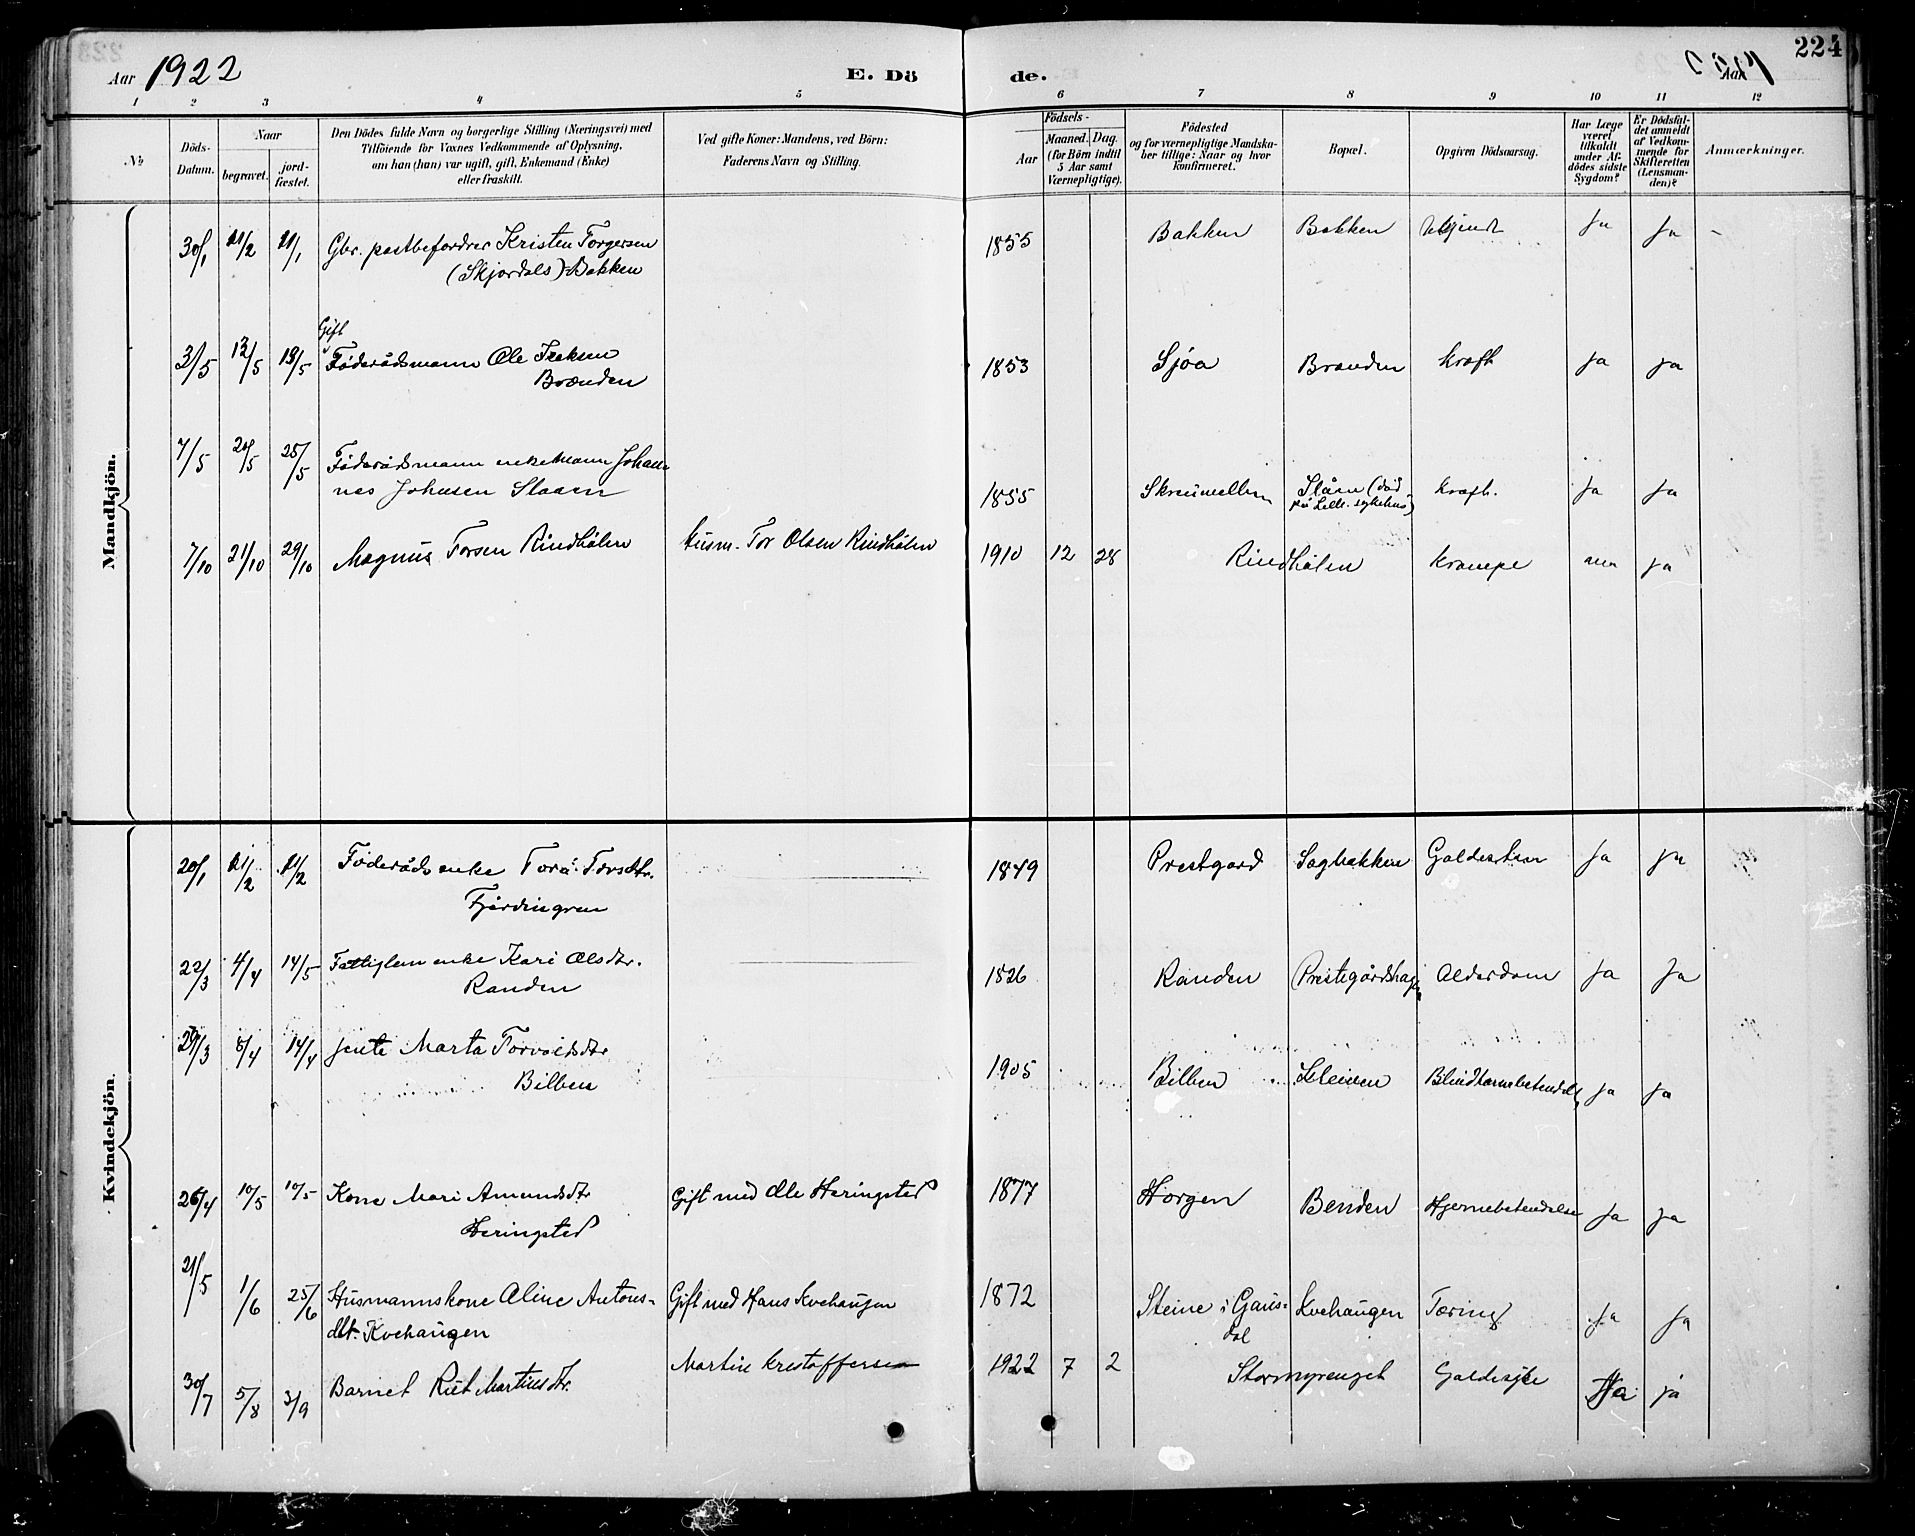 Aar 1922
E. Dö
de.
Aar
224
1 2 3 4 5 6 7 8 9 10 11 12
№
Döds-
Datum.
Naar
begravet.
jord-
fæstet.
Den Dödes fulde Navn og borgerlige Stilling (Næringsvei) med
Tilföiende for Voxnes Vedkommende af Oplysning,
om han (hun) var ugift, gift, Enkemand (Enke)
eller fraskilt.
Ved gifte Koner: Mandens, ved Börn:
Faderens Navn og Stilling.
Födsels-
Aar
Maaned. Dag.
(for Börn indtil
5 Aar samt
Værnepligtige).
Födested
og for værnepligtige Mandska-
ber tillige: Naar og hvor
konfirmeret.
Bopæl.
Opgiven Dödsaarsag.
Har Læge
været
tilkaldt
under Af-
dödes sidste
Sygdom?
Er Dödsfal-
det anmeldt
af Vedkom-
mende for
Skifteretten
(Lensman-
den)?
Anmærkninger.
Mandkjön.
30/1 11/2 21/1 Gbr. postbefordrer Kristen Torgersen 1855 Bakken Bakken Ukjendt Ja Ja -
(Skjordals) Bakken
Gift
3/5 12/5 13/5 Föderådsmann Ole Iveksen 1853 Sjøa Brænden Kræft ja ja
Brænden
7/5 20/5 25/5 Föderådsmann enkemann Johan-
nes Johnsen Slaaen 1855 Slåen (död Kræft. Ja Ja
på Lille. sykehus)
7/10 21/10 29/10 Magnus Torsen Rindhölen Husm. Tor Olsen Rindhölen 1910 12 28 Rindhölen Krampe nei ja
Kvindekjön.
20/1 11/2 11/2 Föderåds enke Tora Torsdtr. 1849 Prestgard Sagbakken Galdesten Ja ja
Fjerdingren
22/3 4/4 14/5 Fattiglem enke Kari Olsdtr. 1826 Randen Prestegårdshagen Alderdom Ja Ja
Randen
29/3 8/4 14/4 Jente Marta Torvoldsdtr
Bilben 1905 Bilben Kleiven Blindtarmsbetendelse ja ja
26/4 10/5 10/5 Kone Mari Amundsdtr Gift med Ole Heringstad 1877 Horgen Benden Hjernebetendelse Ja ja
Heringstad
21/5 1/6 25/6 Husmannskone Aline Antons- Gift med Hans Kvehaugen 1872 Steine i Gaus- Kvehaugen Tæring Ja Ja
dtr. Kvehaugen dal
30/7 5/8 3/9 Barnet Rut Martinsdtr. Martin Kristoffersen 1922 7 2 Stormyrenget Galdesyke Ja ja